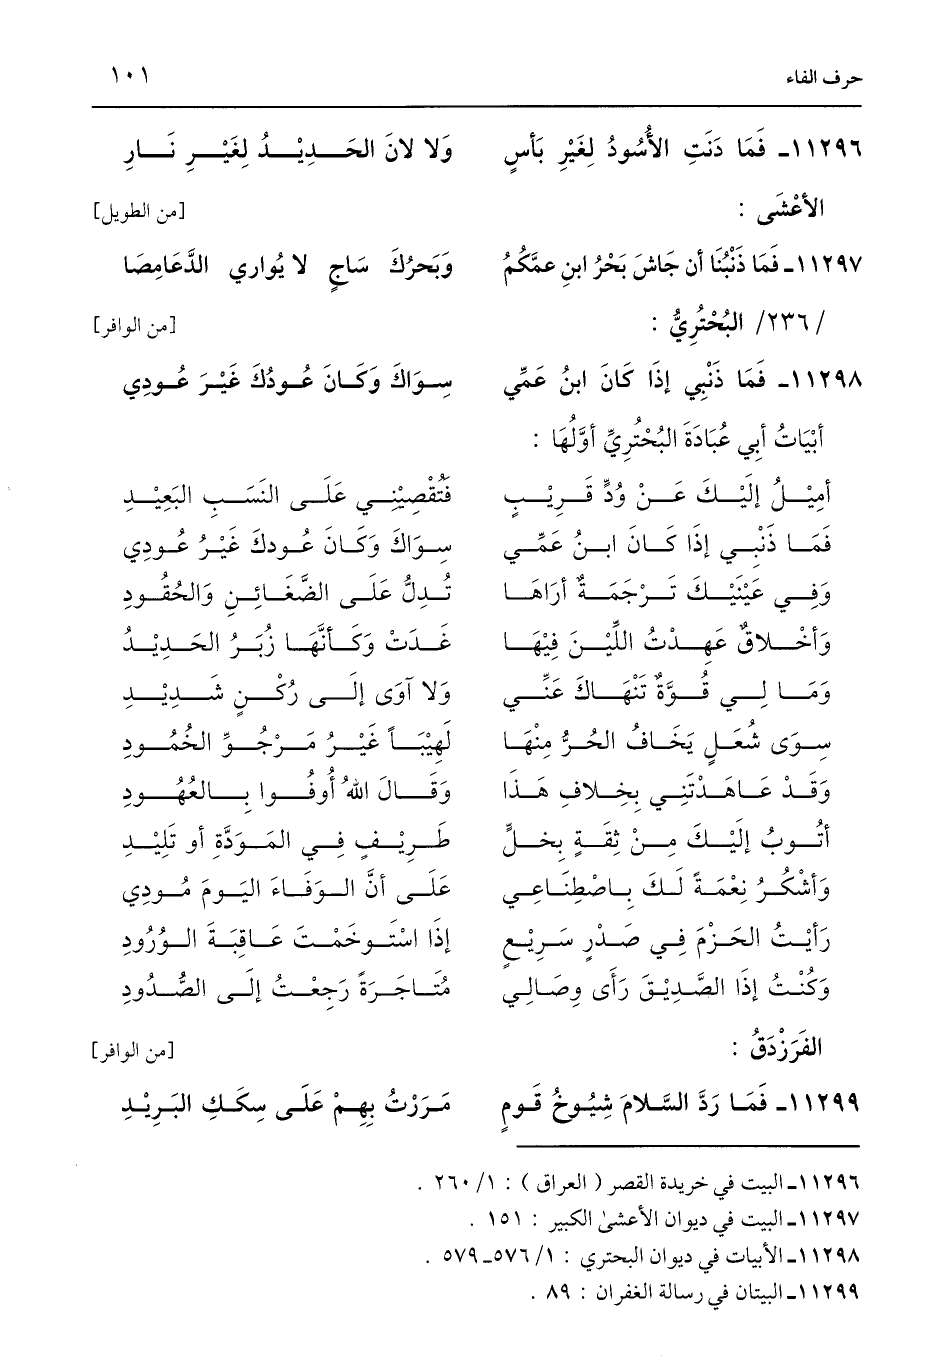 حرف الفاء ١٠١
١١٢٩٦ـ فَمَا دَنَتِ الأُسُودُ لِغَيْرِ بَأسٍ وَلا لانَ الحَـدِيْـدُ لِغَيْـرِ نَـارِ
الأعْشَى : [من الطويل]
١١٢٩٧ـ فَمَا ذَنْبُنَا أن جَاشَ بَحْرُ ابنِ عمَّكُمُ وَبَحرُكَ سَاجٍ لا يُواري الدَّعَامِصَا
/٢٣٦/ البُحْتُرِيُّ : [من الوافر]
١١٢٩٨ـ فَمَا ذَنْبِي إذَا كَانَ ابنُ عَمِّي سِـوَاكَ وَكَـانَ عُـودُكَ غَيْـرَ عُـودِي
أبْيَاتُ أبي عُبَادَةَ البُحْتُرِيِّ أوَّلُهَا :
أمِيْـلُ إلَيْـكَ عَـنْ وُدٍّ قَـرِيْـبٍ فَتُقْصِيْنِـي عَلَـى النَّسَـبِ البَعِيْـدِ
فَمَـا ذَنْبِـي إذَا كَـانَ ابـنُ عَمِّـي سِـوَاكَ وَكَـانَ عُـودكَ غَيْـرُ عُودِي
وَفِـي عَيْنَيْـكَ تَـرْجَمَـةٌ أرَاهَـا تُـدِلُّ عَلَـى الضَّغَـائِـنِ وَالحُقُـودِ
وَأخْـلاقٌ عَهِـدْتُ اللَّيْـنَ فِيْهَـا غَـدَتْ وَكَـأنَّهَـا زُبَـرُ الحَـدِيْـدُ
وَمَـا لِـي قُـوَّةٌ تَنْهَـاكَ عَنِّـي وَلا آوَى إلَـى رُكْـنٍ شَـدِيْـدِ
سِـوَى شُعَـلٍ يَخَـافُ الحُـرُّ مِنْهَـا لَهِيْبَـاً غَيْـرُ مَـرْجُـوِّ الخُمُـودِ
وَقَـدْ عَـاهَـدْتَنِـي بِخِـلافِ هَـذَا وَقَـالَ اللهُ أُوفُـوا بِـالعُهُـودِ
أتُـوبُ إلَيْـكَ مِـنْ ثِقَـةٍ بِخِـلٍّ طَـرِيْـفٍ فِـي المَـوَدَّةِ أو تَلِيْـدِ
وَأشْكُـرُ نِعْمَـةً لَـكَ بِـاصْطِنَـاعِـي عَلَـى أنَّ الـوَفَـاءَ اليَـومَ مُـودِي
رَأيْـتُ الحَـزْمَ فِـي صَـدْرٍ سَـرِيْـعٍ إذَا اسْتَـوخَمْـتَ عَـاقِبَـةَ الـوُرُودِ
وَكُنْـتُ إذَا الصَّـدِيْـقَ رَأى وِصَـالِـي مُتَـاجَـرَةً رَجِعْـتُ إلَـى الصُّـدُودِ
الفَرَزْدَقُ : [من الوافر]
١١٢٩٩ـ فَمَـا رَدَّ السَّـلامَ شِيُـوخُ قَـومٍ مَـرَرْتُ بِهِـمْ عَلَـى سِكَـكِ البَـرِيْـدِ
١١٢٩٦ـ البيت في خريدة القصر ( العراق ) : ١/ ٢٦٠ .
١١٢٩٧ـ البيت في ديوان الأعشىٰ الكبير : ١٥١ .
١١٢٩٨ـ الأبيات في ديوان البحتري : ١/ ٥٧٦ـ ٥٧٩ .
١١٢٩٩ـ البيتان في رسالة الغفران : ٨٩ .